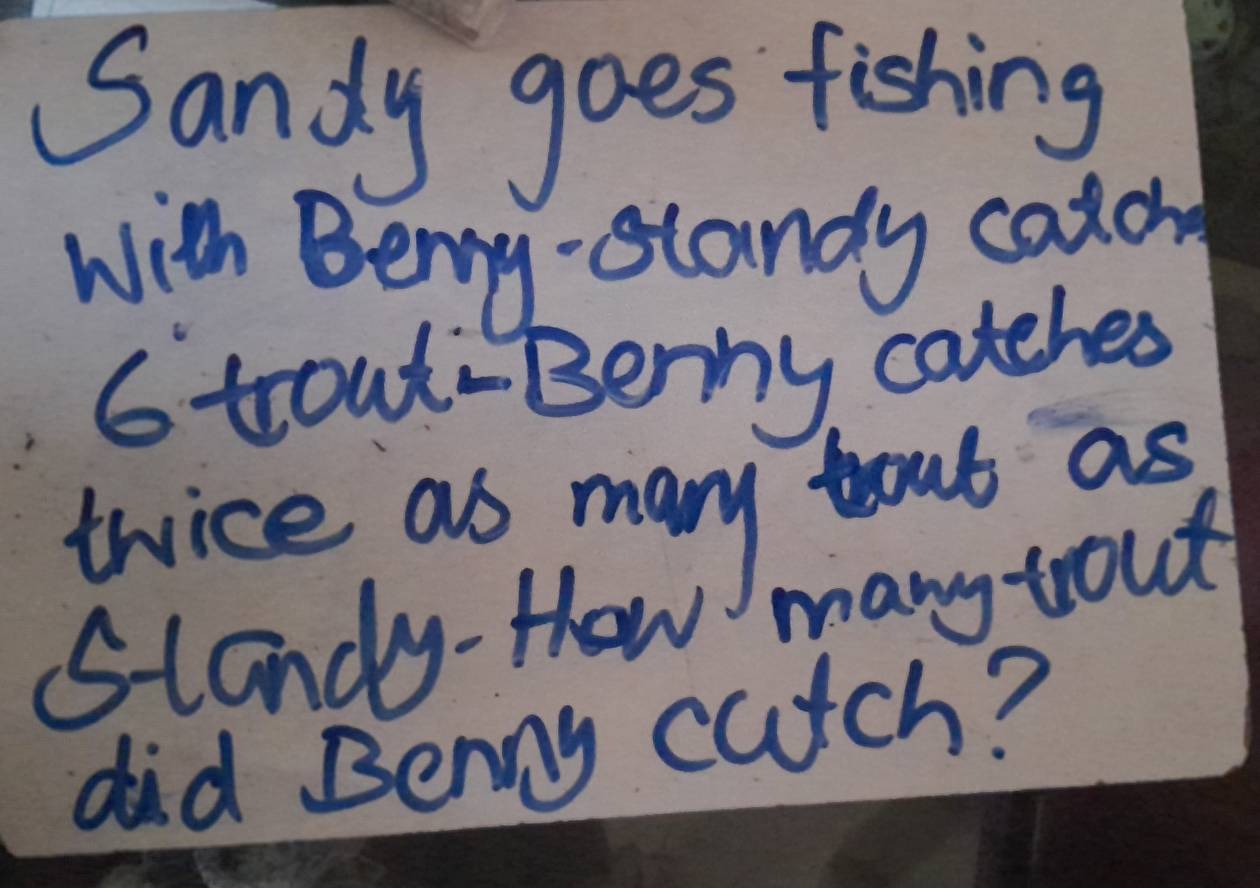 Sandy goes fishing
with Benny-standy catche
6 trout-Benny catches
twice as many trout as
Standy-How many trout
did Benny catch?